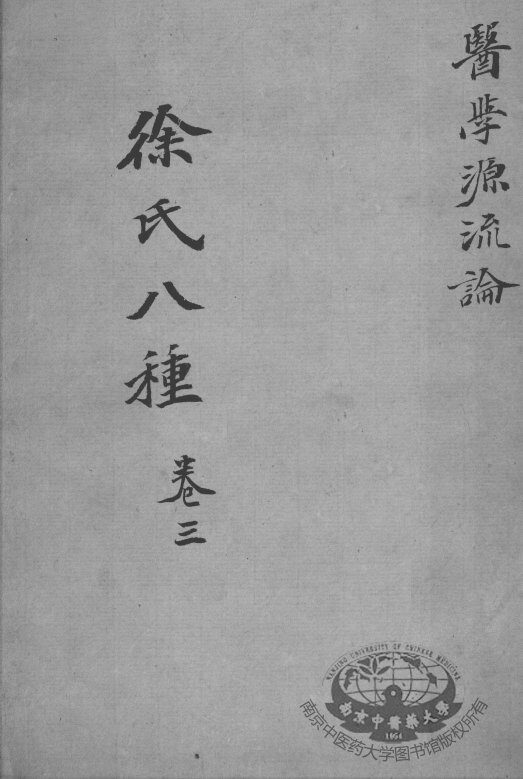 醫學源流論
徐氏八種 卷三
NANJING UNIVERSITY OF CHINESE MEDICINE
南京中醫藥大學
1954
南京中医药大学图书馆版权所有